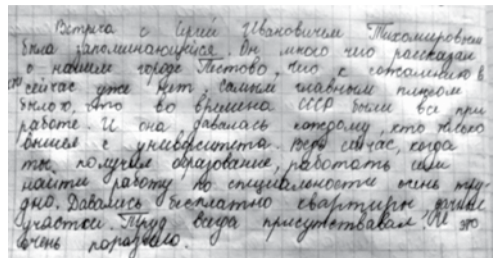 Встреча с Сергей Ивановичем Тихомировым
была запоминающейся. Он много чего рассказал
о нашем городе Пестово, чего к сожалению в
сейчас уже нет, самым главным плюсом
было то, что во времена СССР были все при
работе. И она давалась каждому, кто только
вышел с университета. Ведь сейчас, когда
ты получил образование, работать или
найти работу по специальности очень тру-
дно. Давались бесплатно квартиры, дачные
участки. Труд всегда присутствовал. И это
очень поразило.